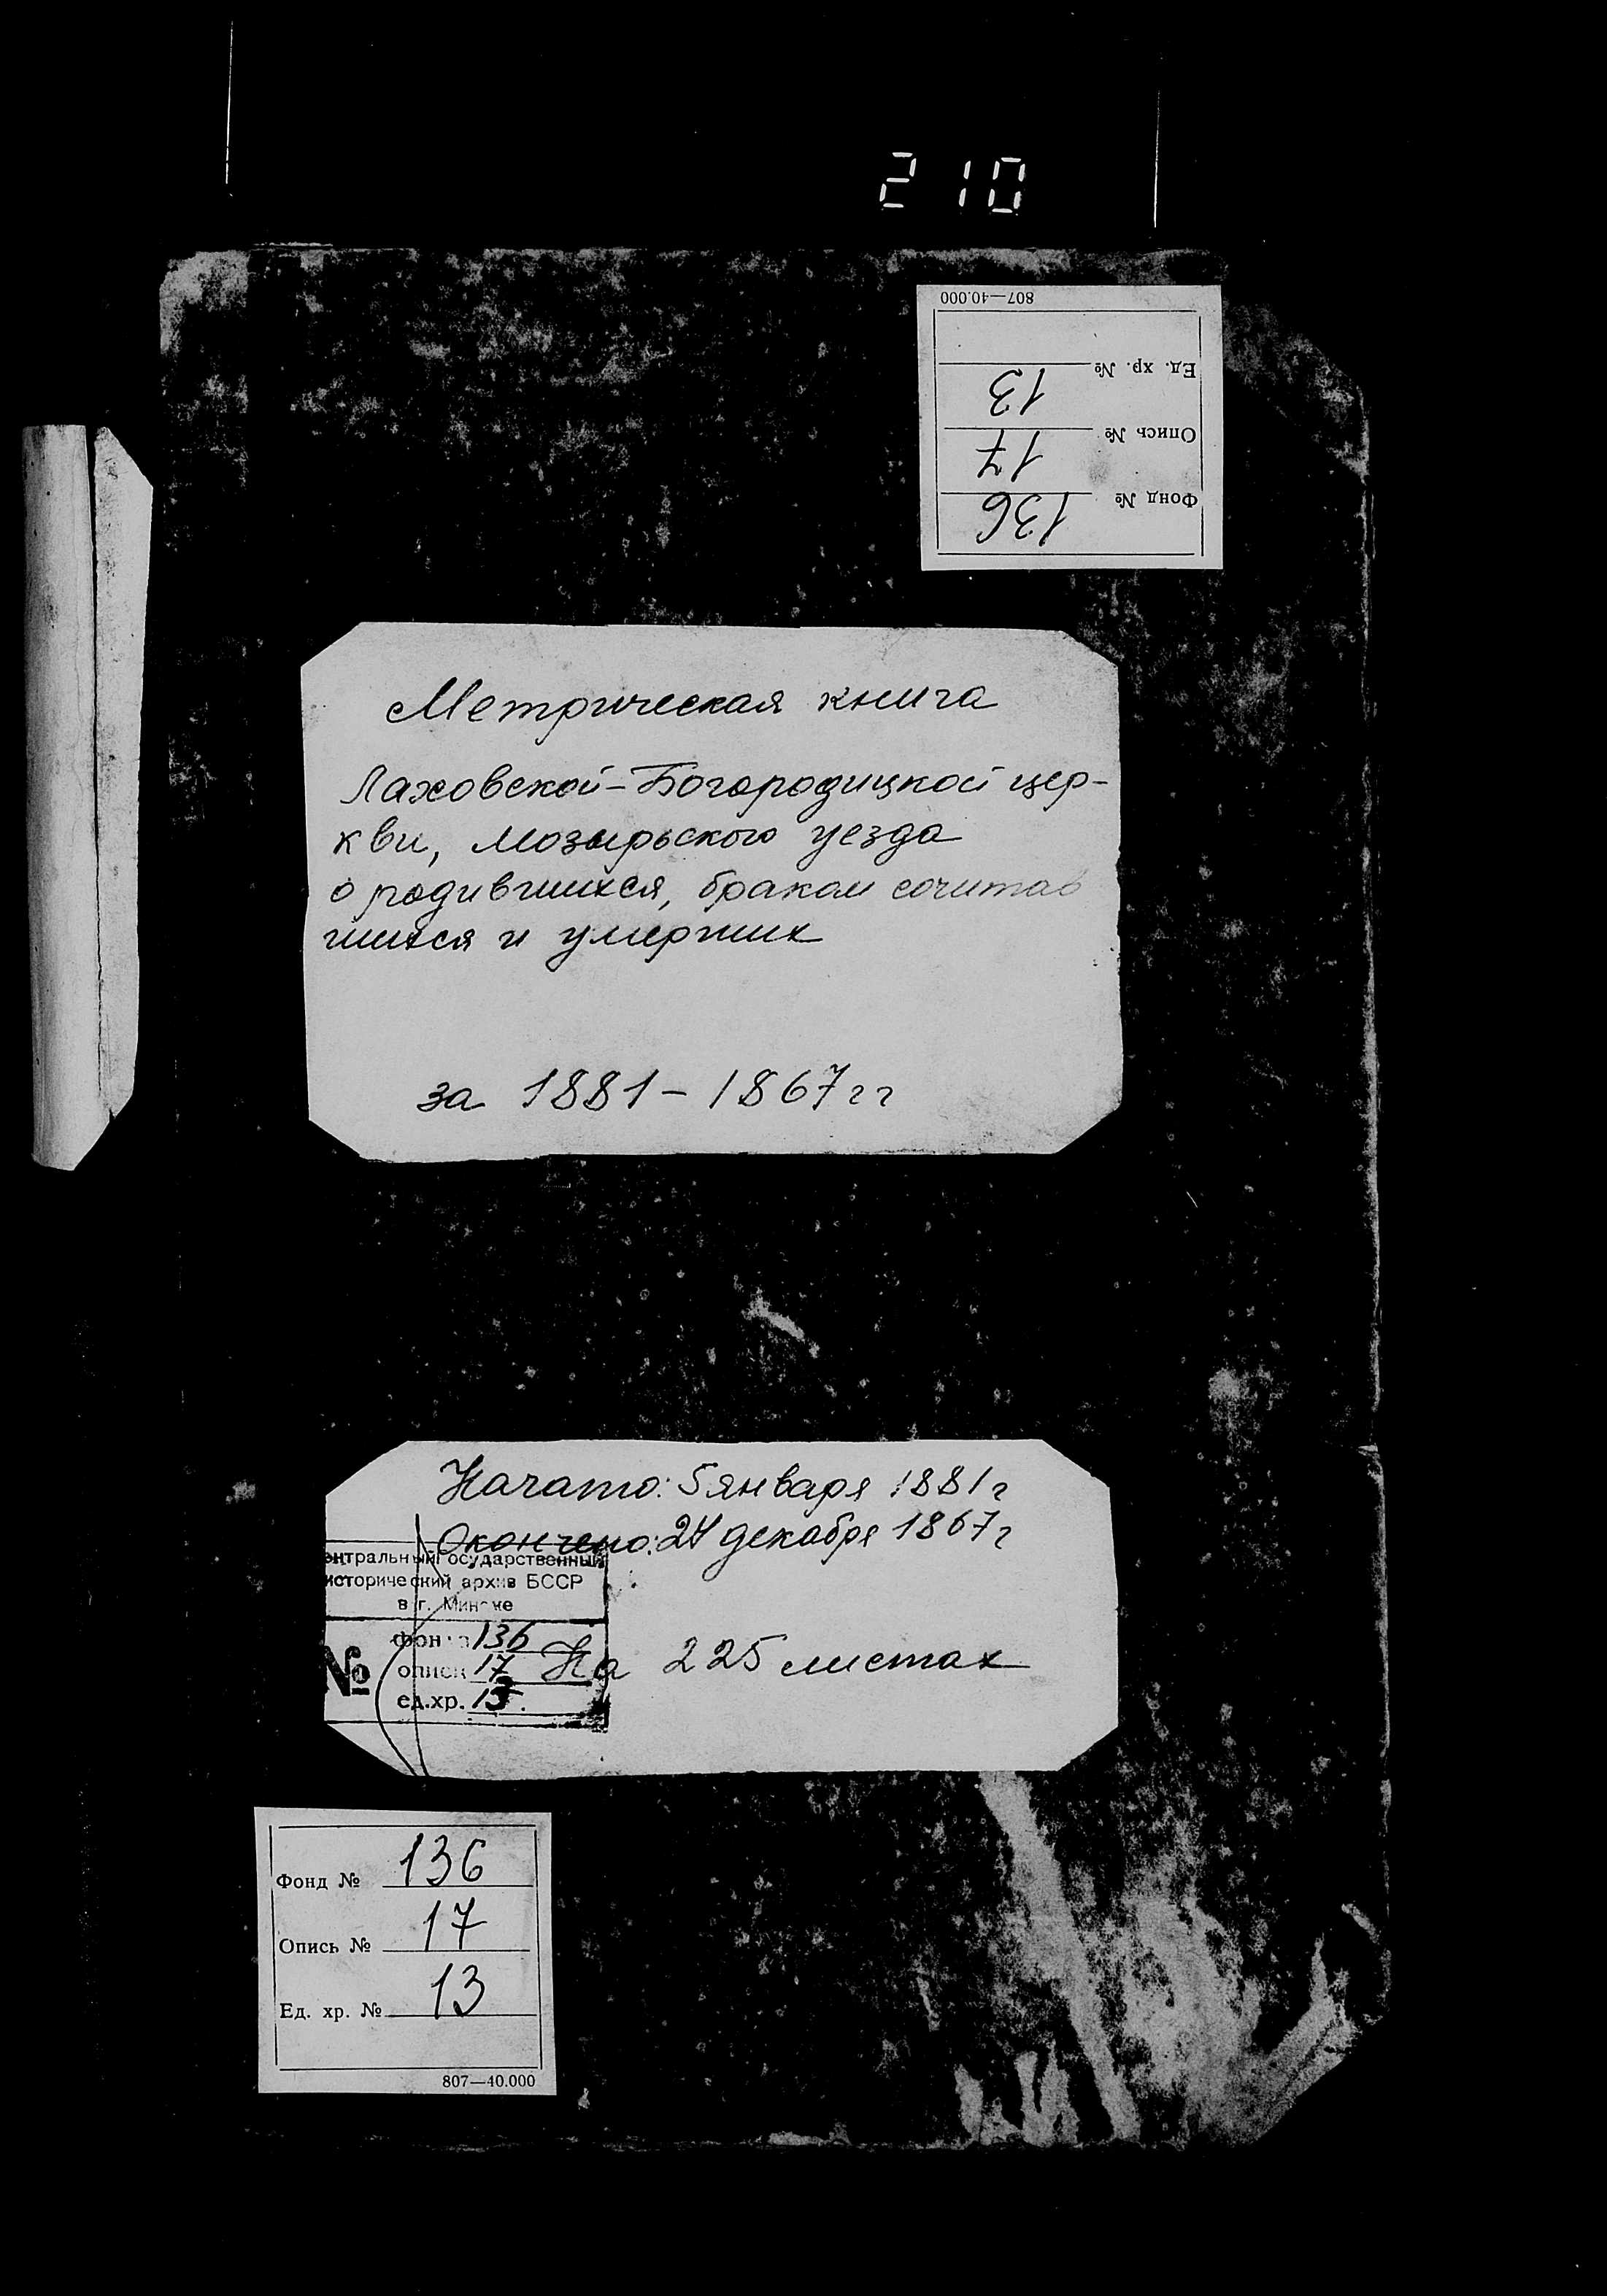 210
807—40.000
Ед. хр. № 13
Опись № 17
Фонд № 136
Метрическая книга
Лаховской-Богородицкой цер-
кви, Мозырьского уезда
о родившихся, браком сочитав
шихся и умерших
за 1881-1867 гг
Начато: 5 января 1881 г
Окончено: 24 декабря 1867 г
ентральный государственный
исторический архив БССР
в г. Минске
№
фонд 136
описи 17
ед.хр. 13.
На 225 листах
Фонд № 136
Опись № 17
Ед. хр. № 13
807—40.000